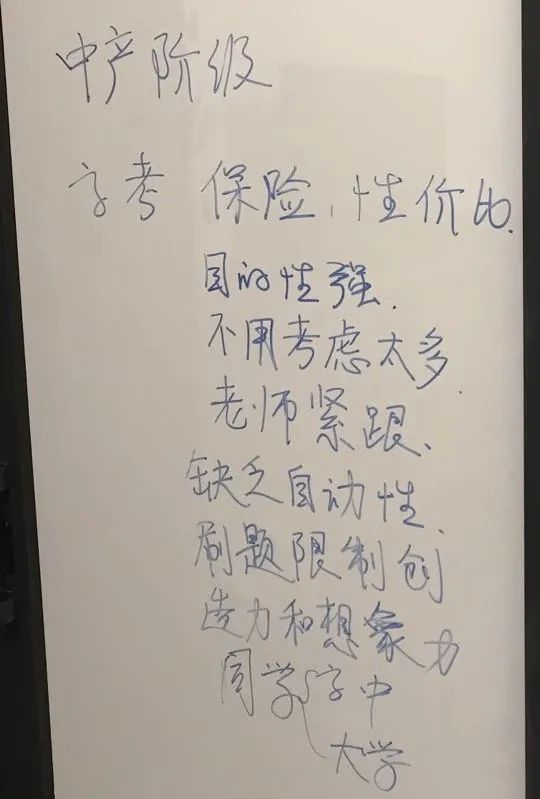 中产阶级
高考 保险，性价比.
目的性强.
不用考虑太多.
老师紧跟、
缺乏自动性、
刷题限制创
造力和想象力
同学 高中
大学